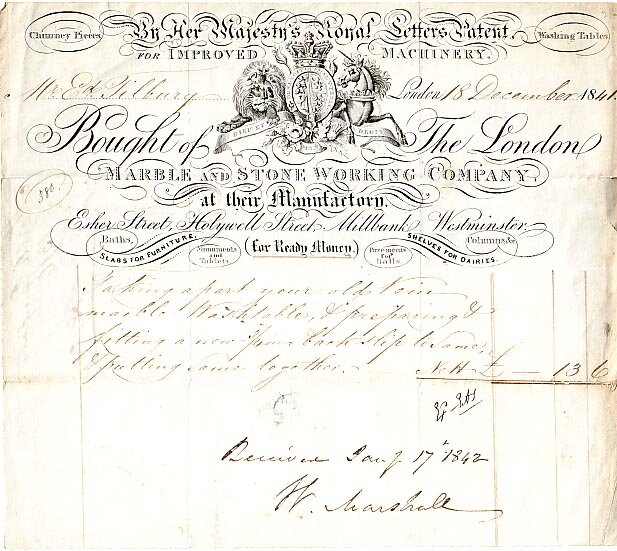 Chimney Pieces
By Her Majesty's Royal Letters Patent,
Washing Tables
FOR IMPROVED MACHINERY.
Mr Ed. Tilbury London 18 December 1841.
DIEU ET DROIT
Bought of The London
380
MARBLE AND STONE WORKING COMPANY,
at their Manufactory,
Esher Street, Holywell Street, Millbank, Westminster
Baths, Columns &c
SLABS FOR FURNITURE. SHELVES FOR DAIRIES.
Monuments and Tablets
for Ready Money.
Pavements for Halls.
Taking apart your old
marble Washtable, & preparing &
fitting a new back slip to same,
& putting same together. Nett £ — 13 6
Received Jany 17 1842
W. Marshall